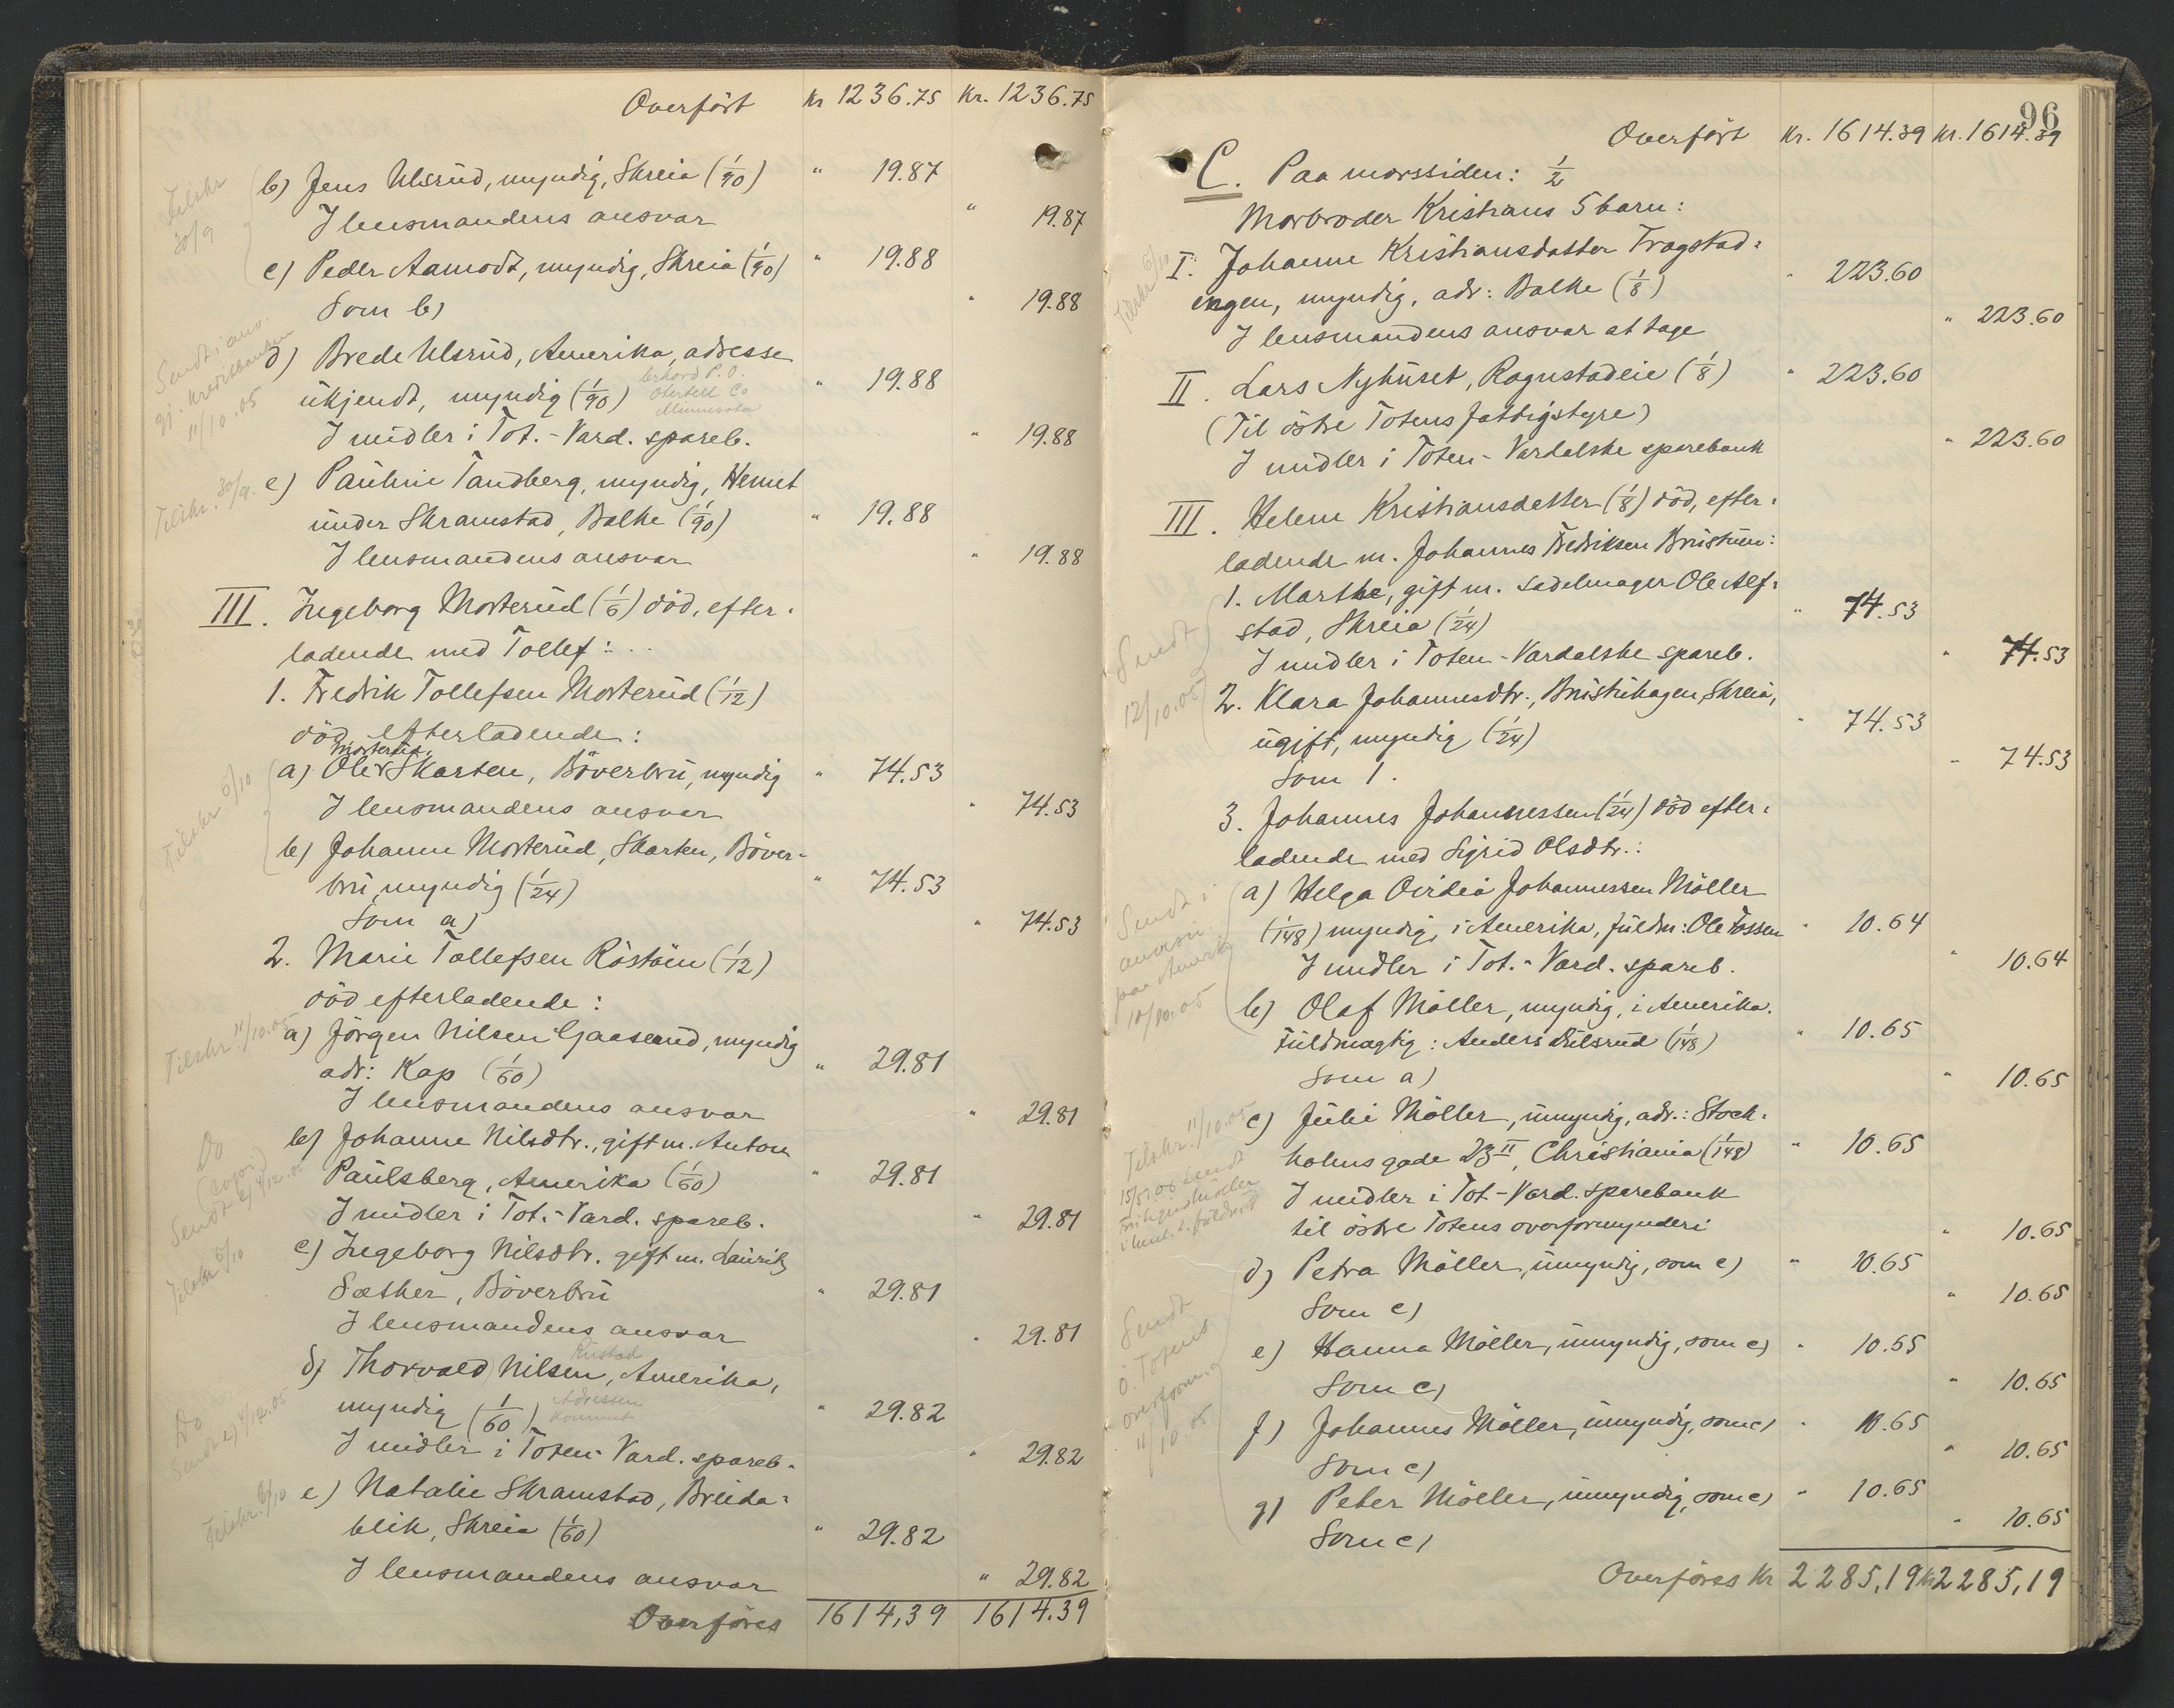 Overført Kr 1236.75 Kr. 1236.75
b) Jens Ulsrud, myndig, Skreia (1/90) " 19.87
I lensmandens ansvar " 19.87
Tilskr 30/9
c) Peder Aamodt, myndig, Skreia (1/90) " 19.88
Som b) " 19.88
d) Brede Ulsrud, Amerika, adresse
Sendt i anv. gj. Kreditbanken 11/10.05
ukjendt, myndig (1/90) " 19.88
P.O. Ottertell Co Minnesota
I midler i Tot.-Vard. spareb. " 19.88
Tilskr. 30/9. e) Pauline Tandberg, myndig, Hemet
under Skramstad, Balke (1/90) " 19.88
I lensmandens ansvar " 19.88
III. Ingeborg Mosterud (1/6) død, efter-
ladende med Tollef:
1. Fredrik Tollefsen Mosterud (1/12)
død efterladende:
Mosterud
a) Ole Skarten, Bøverbru, myndig " 74.53
Tilskr 6/10
I lensmandens ansvar " 74.53
b) Johanne Mosterud, Skarten, Bøver-
bru, myndig (1/24) " 74.53
Som a) " 74.53
2. Marie Tollefsen Røstøen (1/12)
død efterladende:
Tilskr. 11/10.05 a) Jørgen Nilsen Gaaserud, myndig
adr: Kap (1/60) " 29.81
I lensmandens ansvar " 29.81
Do b) Johanne Nilsdtr., gift m. Anton
Paulsberg, Amerika (1/60) " 29.81
Sendt 4/12.05
I midler i Tot.-Vard. spareb. " 29.81
Tilskr 6/10 c) Ingeborg Nilsdtr. gift m. Lauritz
Sæther, Bøverbru " 29.81
I lensmandens ansvar " 29.81
Rustad
d) Thorvald Nilsen, Amerika,
Do Sendt 4/12.05
myndig (1/60) " 29.82
Adressen kommet
I midler i Toten-Vard. spareb. " 29.82
Tilskr. 6/10 e) Natalie Skramstad, Breida-
blik, Skreia (1/60) " 29.82
I lensmandens ansvar " 29.82
Overføres 1614,39 1614.39
96
Overført Kr. 1614.39 Kr. 1614.39
C. Paa morssiden: 1/2
Morbroder Kristians 5 barn:
Tilskr 6/10 I. Johanne Kristiansdatter Fragstad-
engen, myndig, adr: Balke (1/8) " 223.60
I lensmandens ansvar at tage " 223.60
II. Lars Nyhuset, Rognstadeie (1/8) " 223.60
(Til østre Totens fattigstyre)
I midler i Toten-Vardalske sparebank " 223.60
III. Helene Kristiansdatter (1/8) død, efter-
ladende m. Johannes Fredriksen Brustuen:
1. Marthe, gift m. sadelmager Ole Alf-
stad, Skreia (1/24) " 74.53
Sendt 12/10.05
I midler i Toten-Vardalske spareb. " 74.53
2. Klara Johannesdtr., Brustuhagen, Skreia,
ugift, myndig (1/24) " 74.53
Som 1. " 74.53
3. Johannes Johannessen (1/24) død efter-
ladende med Sigrid Olsdtr.:
a) Helga Ovidia Johannessen Møller
Sendt i anvisn. paa Amerika 10/10.05
(1/148) myndig, i Amerika, fuldm: Ole Fossen " 10.64
I midler i Tot.-Vard. spareb. " 10.64
b) Olaf Møller, myndig, i Amerika.
Fuldmægtig: Anders Dulsrud (1/148) " 10.65
Som a) " 10.65
Tilskr. 11/10.05 c) Julie Møller, umyndig, adr.: Stock-
holmsgade 23 II, Christiania (1/148) " 10.65
I midler i Tot-Vard. sparebank
til østre Totens overformynderi " 10.65
d) Petra Møller, umyndig, som c) " 10.65
Som c) " 10.65
Sendt ø. Totens overform. 11/10.05
e) Hanna Møller, umyndig, som c) " 10.65
Som c) " 10.65
f) Johannes Møller, umyndig, som c) " 10.65
Som c) " 10.65
g) Peter Møller, umyndig, som c) " 10.65
Som c) " 10.65
Overføres Kr 2285,19 Kr 2285,19